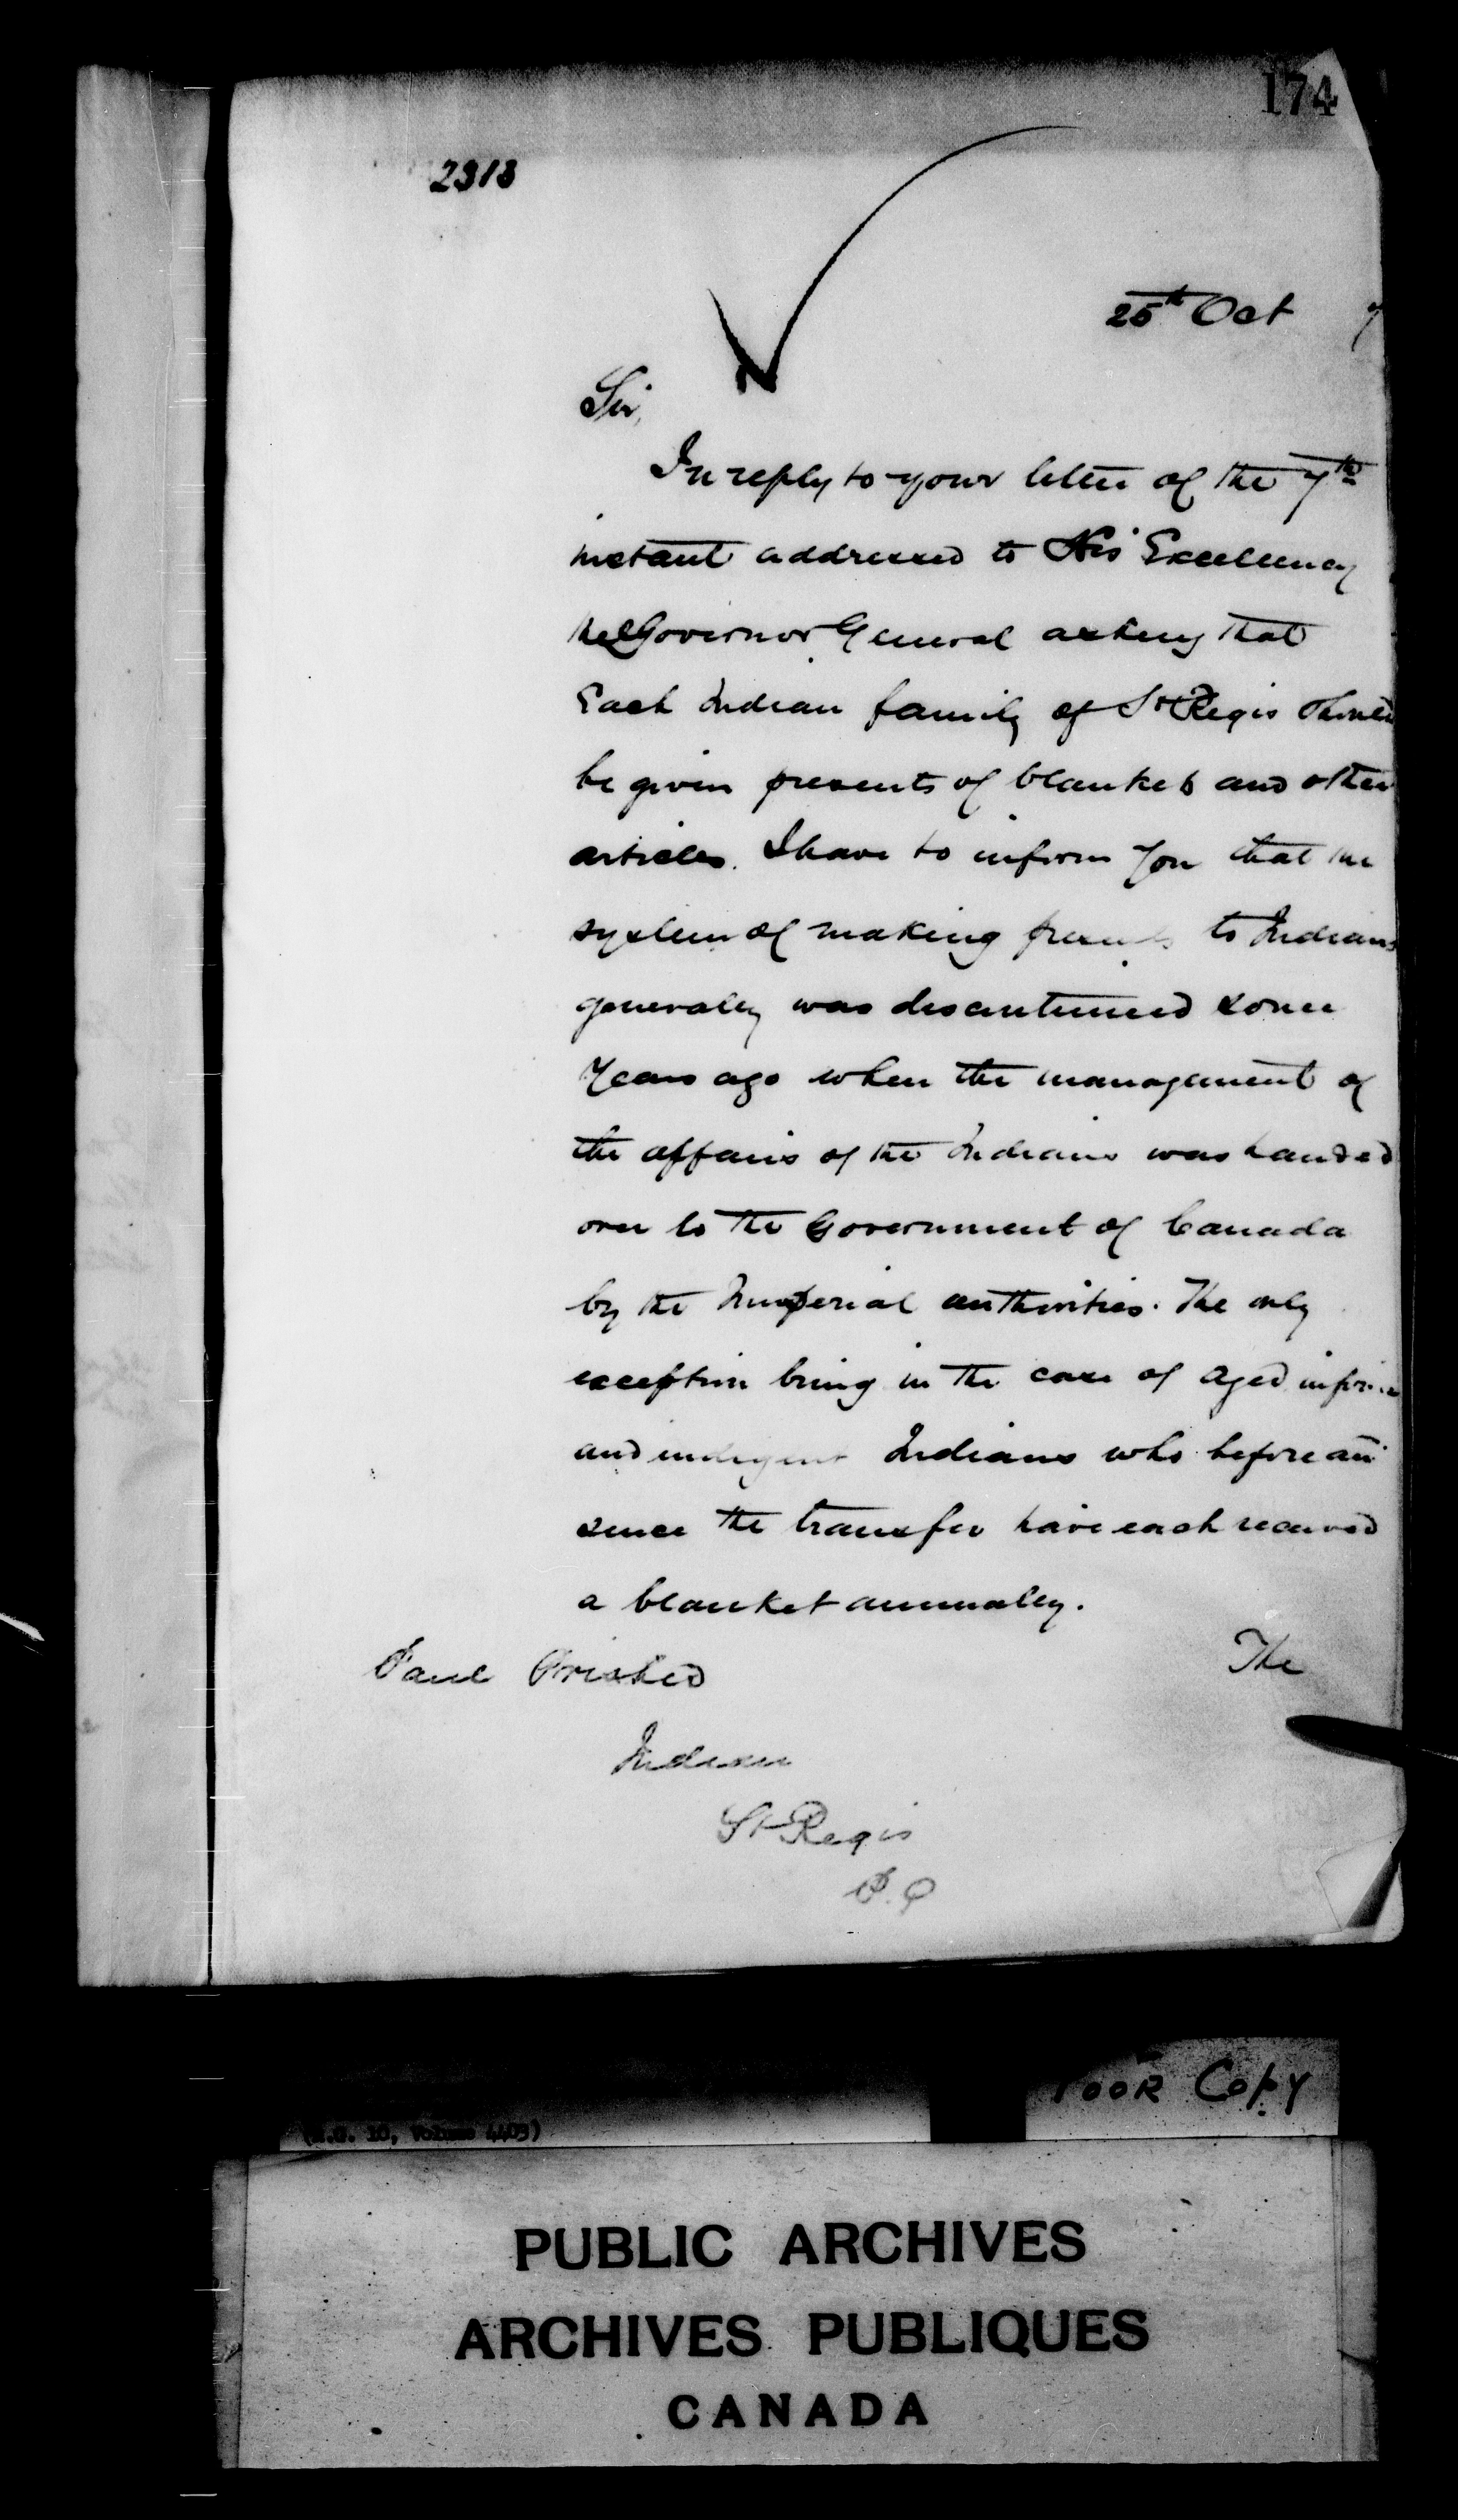 174
2318
25th Oct 7
Sir,
In reply to your letter of the 7th
instant addressed to His Excellency
the Governor General asking that
Each Indian family of St Regis should
be given presents of blankets and other
articles. I have to inform you that the
system of making presents to Indians
generally was discontinued some
Years ago when the management of
the affairs of the Indians was handed
over to the Government of Canada
by the Imperial authorities. The only
exception being in the case of aged infirm
and indigent Indians who before and
since the transfer have each received
a blanket annually.
Paul The
Indian
St Regis
P.Q
Poor Copy
(R.G. 10, Volume 4409)
PUBLIC ARCHIVES
ARCHIVES PUBLIQUES
CANADA